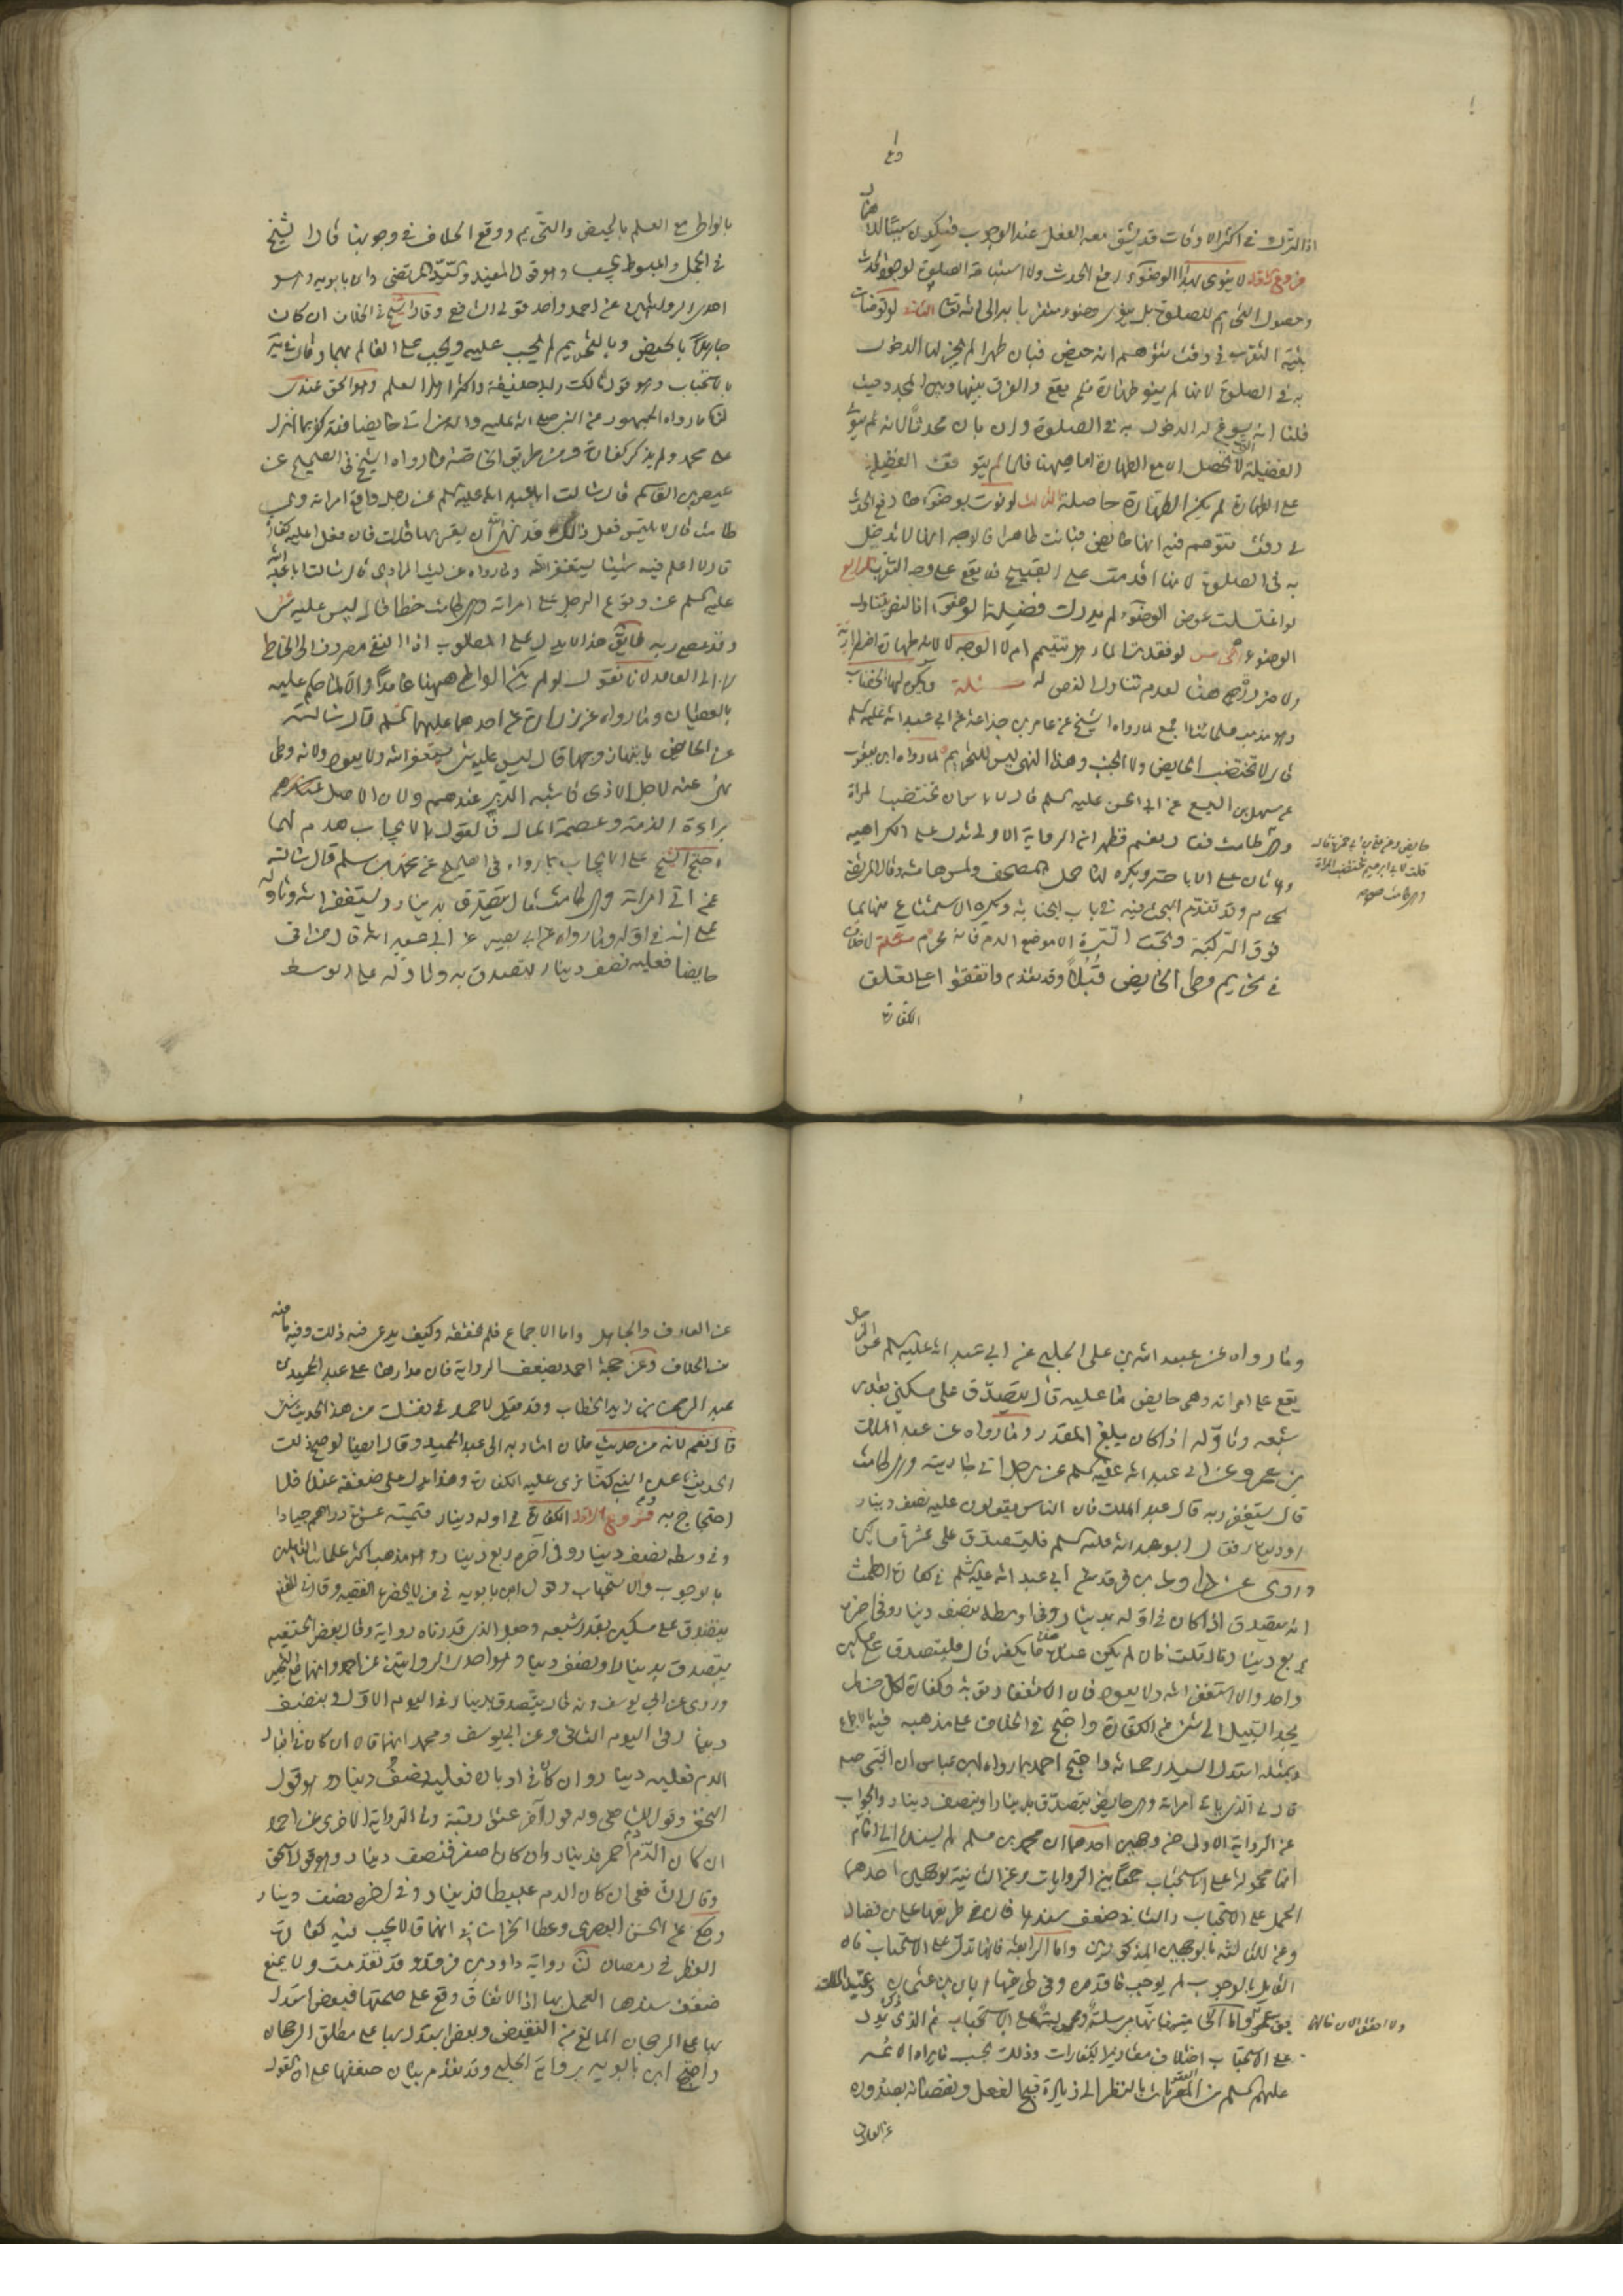 اذ الترك في اكثر الاوقات قد يشق معه الفعل عند الوجوب فيكون سببا للاهمال
فروع الاول لا ينوى بهذا الوضوء رفع الحدث ولا استباحة الصلوة لوجود الحدث
وحصول التحريم للصلوة بل ينوى وضوء متقربا به الى الله تعالى الثاني لو توضأت
بنية التقرب في وقت تتوهم انه حيض فبان طهرا لم يجز لها الدخول
به في الصلوة لانها لم ينو طهارة فلم يقع والفرق بينها وبين المجدد حيث
قلنا انه يسوغ له الدخول به في الصلوة وان بان محدثا لانه نوى
الفضيلة لا تحصل الا مع الطهارة اما ههنا فلما لم يتوقف الفضيلة
على الطهارة لم يكن الطهارة حاصلة الثالث لو نوت بوضوءها رفع الحدث
في وقت تتوهم فيه انها حائض فبانت طاهرا فالوجه انها لا تدخل
به في الصلوة لانها اقدمت على القبيح فلا يقع على وجه التقرب الرابع
لو اغتسلت عوض الوضوء لم يدرك فضيلة الوضوء اذ النص يتناول
الوضوء الخامس لو فقدت الماء هل تتيمم ام لا الوجه لا لانه طهارة اضطرارية
ولا ضرورة هنا لعدم تناول النص له مسئلة ويكره لها الخضاب
وهو مذهب علمائنا اجمع لما رواه الشيخ عن عامر بن جذاعة عن ابي عبد الله عليه السلم
قال لا تختضب الحايض ولا الجنب وهذا النهي ليس للتحريم لما رواه ابن يعقوب
عن سهل بن اليسع عن ابي الحسن عليه السلم قال لا باس ان تختضب المراة
وهي طامث فقال نعم فظهر ان الرواية الاولى تدل على الكراهية
والثانى على الاباحة ويكره لها حمل المصحف ولمس هامشه وقال المرتضى
يحرم وقد تقدم البحث فيه في باب الجنابة ويكره الاستمتاع منها بما
فوق الركبة وتحت السرة الا موضع الدم فانه محرم مسئلة لا خلاف
في تحريم وطى الحايض قبلا وقد تقدم واتفقوا على تعلق
الكفارة
قلت لابي ابراهيم تختضب المراة
وهي طامث
بالواطى مع العلم بالحيض والتحريم ووقع الخلاف في وجوبها قال الشيخ
في الجمل والمبسوط يجب وهو قول المفيد والسيد المرتضى وابن بابويه وهو
احدى الروايتين عن احمد واحد قولي الشافعي وقال الشيخ في الخلاف ان كان
جاهلا بالحيض وبالتحريم لم يجب عليه ويجب على العالم بهما وقال في النهاية
بالاستحباب وهو قول مالك وابي حنيفة واكثر اهل العلم وهو الحق عندى
لنا ما رواه الجمهور عن النبي صلى الله عليه واله من اتى حايضا فقد كفر بما انزل
على محمد ولم يذكر كفارة ومن طريق الخاصة ما رواه الشيخ في الصحيح عن
عيص بن القاسم قال سالت ابا عبد الله عليه السلم عن رجل واقع امراته وهي
طامث قال لا يلتمس فعل ذلك قد نهى الله ان يقربها قلت فان فعل اعليه كفارة
قال لا اعلم فيه شيئا يستغفر الله وما رواه عن ليث المرادى قال سالت ابا عبد الله
عليه السلم عن وقوع الرجل على امراته وهي طامث خطا قال ليس عليه شى
وقد عصى ربه لا يق هذا لا يدل على المطلوب اذ النفي مصروف الى الخاطى
لا الى العامد لانا نقول لو لم يكن الواطى ههنا عامدا والا لما حكم عليه
بالعصيان وما رواه عن زرارة عن احدهما عليهما السلم قال سالته
عن الحائض ياتيها زوجها قال ليس عليه شى يستغفر الله ولا يعود ولانه وطى
نهى عنه لاجل الاذى فاشبه الدبر عندهم ولان الاصل عندكم
براءة الذمة وعصمة المال فالقول بالايجاب هدم لهما
احتج الشيخ على الايجاب بما رواه في الصحيح عن محمد بن مسلم قال سالته
عن اتى امراته وهي طامث قال يتصدق بدينار ويستغفر الله وتاوله
على انه في اوله وما رواه عن ابي بصير عن ابي عبد الله قال من اتى
حايضا فعليه نصف دينار يتصدق به وتاوله على الوسط
وما رواه عن عبيد الله بن على الحلبي عن ابي عبد الله عليه السلم عن الرجل
يقع على امراته وهي حايض ما عليه قال يتصدق على مسكين بقدر
شبعه وتاوله اذا كان يبلغ المقدر وما رواه عن عبد الملك
بن عمرو عن ابى عبد الله عليه السلم عن رجل اتى جاريته وهي طامث
قال يستغفر ربه قال عبد الملك فان الناس يقولون عليه نصف دينار
او دينار فقال ابو عبد الله عليه السلم فليتصدق على عشرة مساكين
وروى عن داود بن فرقد عن ابي عبد الله عليه السلم في كفارة الطمث
انه يتصدق اذا كان في اوله بدينار وفى اوسطه بنصف دينار وفى اخره
بربع دينار قال قلت فان لم يكن عنده ما يكفر قال فليتصدق على مسكين
واحد والا استغفر الله ولا يعود فان الاستغفار توبة وكفارة لكل من لم
يجد السبيل الى شى من الكفارة واحتج في الخلاف على مذهبه فيه بالاجماع
وبمثله استدل السيد رحمه الله واحتج احمد بما رواه ابن عباس ان النبي صلعم
قال في الذى ياتى امراته وهي حايض يتصدق بدينار او بنصف دينار والجواب
عن الرواية الاولى من وجهين احدهما ان محمد بن مسلم لم يسندها الى امام
انها محمولة على الاستحباب جمعا بين الروايات وعن الثانية بوجهين احدهما
الحمل على الاستحباب والثانى ضعف سندها فان في طريقها على بن فضال
وعن الثالثة بالوجهين المذكورين واما الرابعة فانها تدل على الاستحباب فان
القايل بالوجوب لم يوجب ما قدره وفى طريقها ابان بن عثمان وعبد الملك
بن عمرو واما الخامسة فانها مرسلة ومحمولة على الاستحباب ثم الذى يدل
على الاستحباب اختلاف مقادير الكفارات وذلك بحسب ما يراه الائمة
عليهم السلم من التقربات بالنظر الى زيادة قبح الفعل ونقصانه بصدوره
عن العارف
عن العارف والجاهل واما الاجماع فلم نحققه وكيف يدعى فيه ذلك وفيه ما فيه
من الخلاف وعن حجة احمد بضعف الرواية فان مدارها على عبد الحميد بن
عبد الرحمن بن زيد الخطاب وقد قيل لاحمد في نفسك من هذا الحديث شى
قال نعم لانه من حديث فلان اشار به الى عبد الحميد وقال ايضا لو صح ذلك
الحديث عن النبي كنا نرى عليه الكفارة وهذا يدل على ضعفه عنده فلا
احتجاج به فروع الاول الكفارة في اوله دينار قيمته عشرة دراهم جيادا
وفى وسطه نصف دينار وفى آخره ربع دينار وهو مذهب اكثر علمائنا القايلين
بالوجوب والاستحباب وقول ابن بابويه في من لا يحضره الفقيه وقال في المقنع
يتصدق على مسكين بقدر شبعه وجعل الذى قدرناه رواية وقال بعض الحنفية
يتصدق بدينار او نصف دينار وهو احدى الروايتين عن احمد
وروى عن ابي يوسف انه قال يتصدق بدينار في اليوم الاول وبنصف
دينار في اليوم الثانى وعن ابي يوسف ومحمد انهما قالا ان كان في اقبال
الدم فعليه دينار وان كان في ادباره فعليه نصف دينار وهو قول
النخعي وقول الشافعى وله قول آخر عتق رقبة وفى الرواية الاخرى عن احمد
ان كان الدم احمر فدينار وان كان اصفر فنصف دينار وهو قول اسحق
وقال الشافعى ان كان الدم عبيطا فدينار وفى اخره نصف دينار
وحكى عن الحسن البصرى وعطا الخراسانى انهما قالا يجب فيه كفارة
الفطر في رمضان لنا رواية داود بن فرقد وقد تقدمت ولا يمنع
ضعف سندها العمل بها اذ الاتفاق وقع على صحتها فبعض استدل
بها على الرجحان المانع من النقيض وبعض استدل بها على مطلق الرجحان
واحتج ابن بابويه برواية الحلبي وقد تقدم بيان ضعفها على ان القول